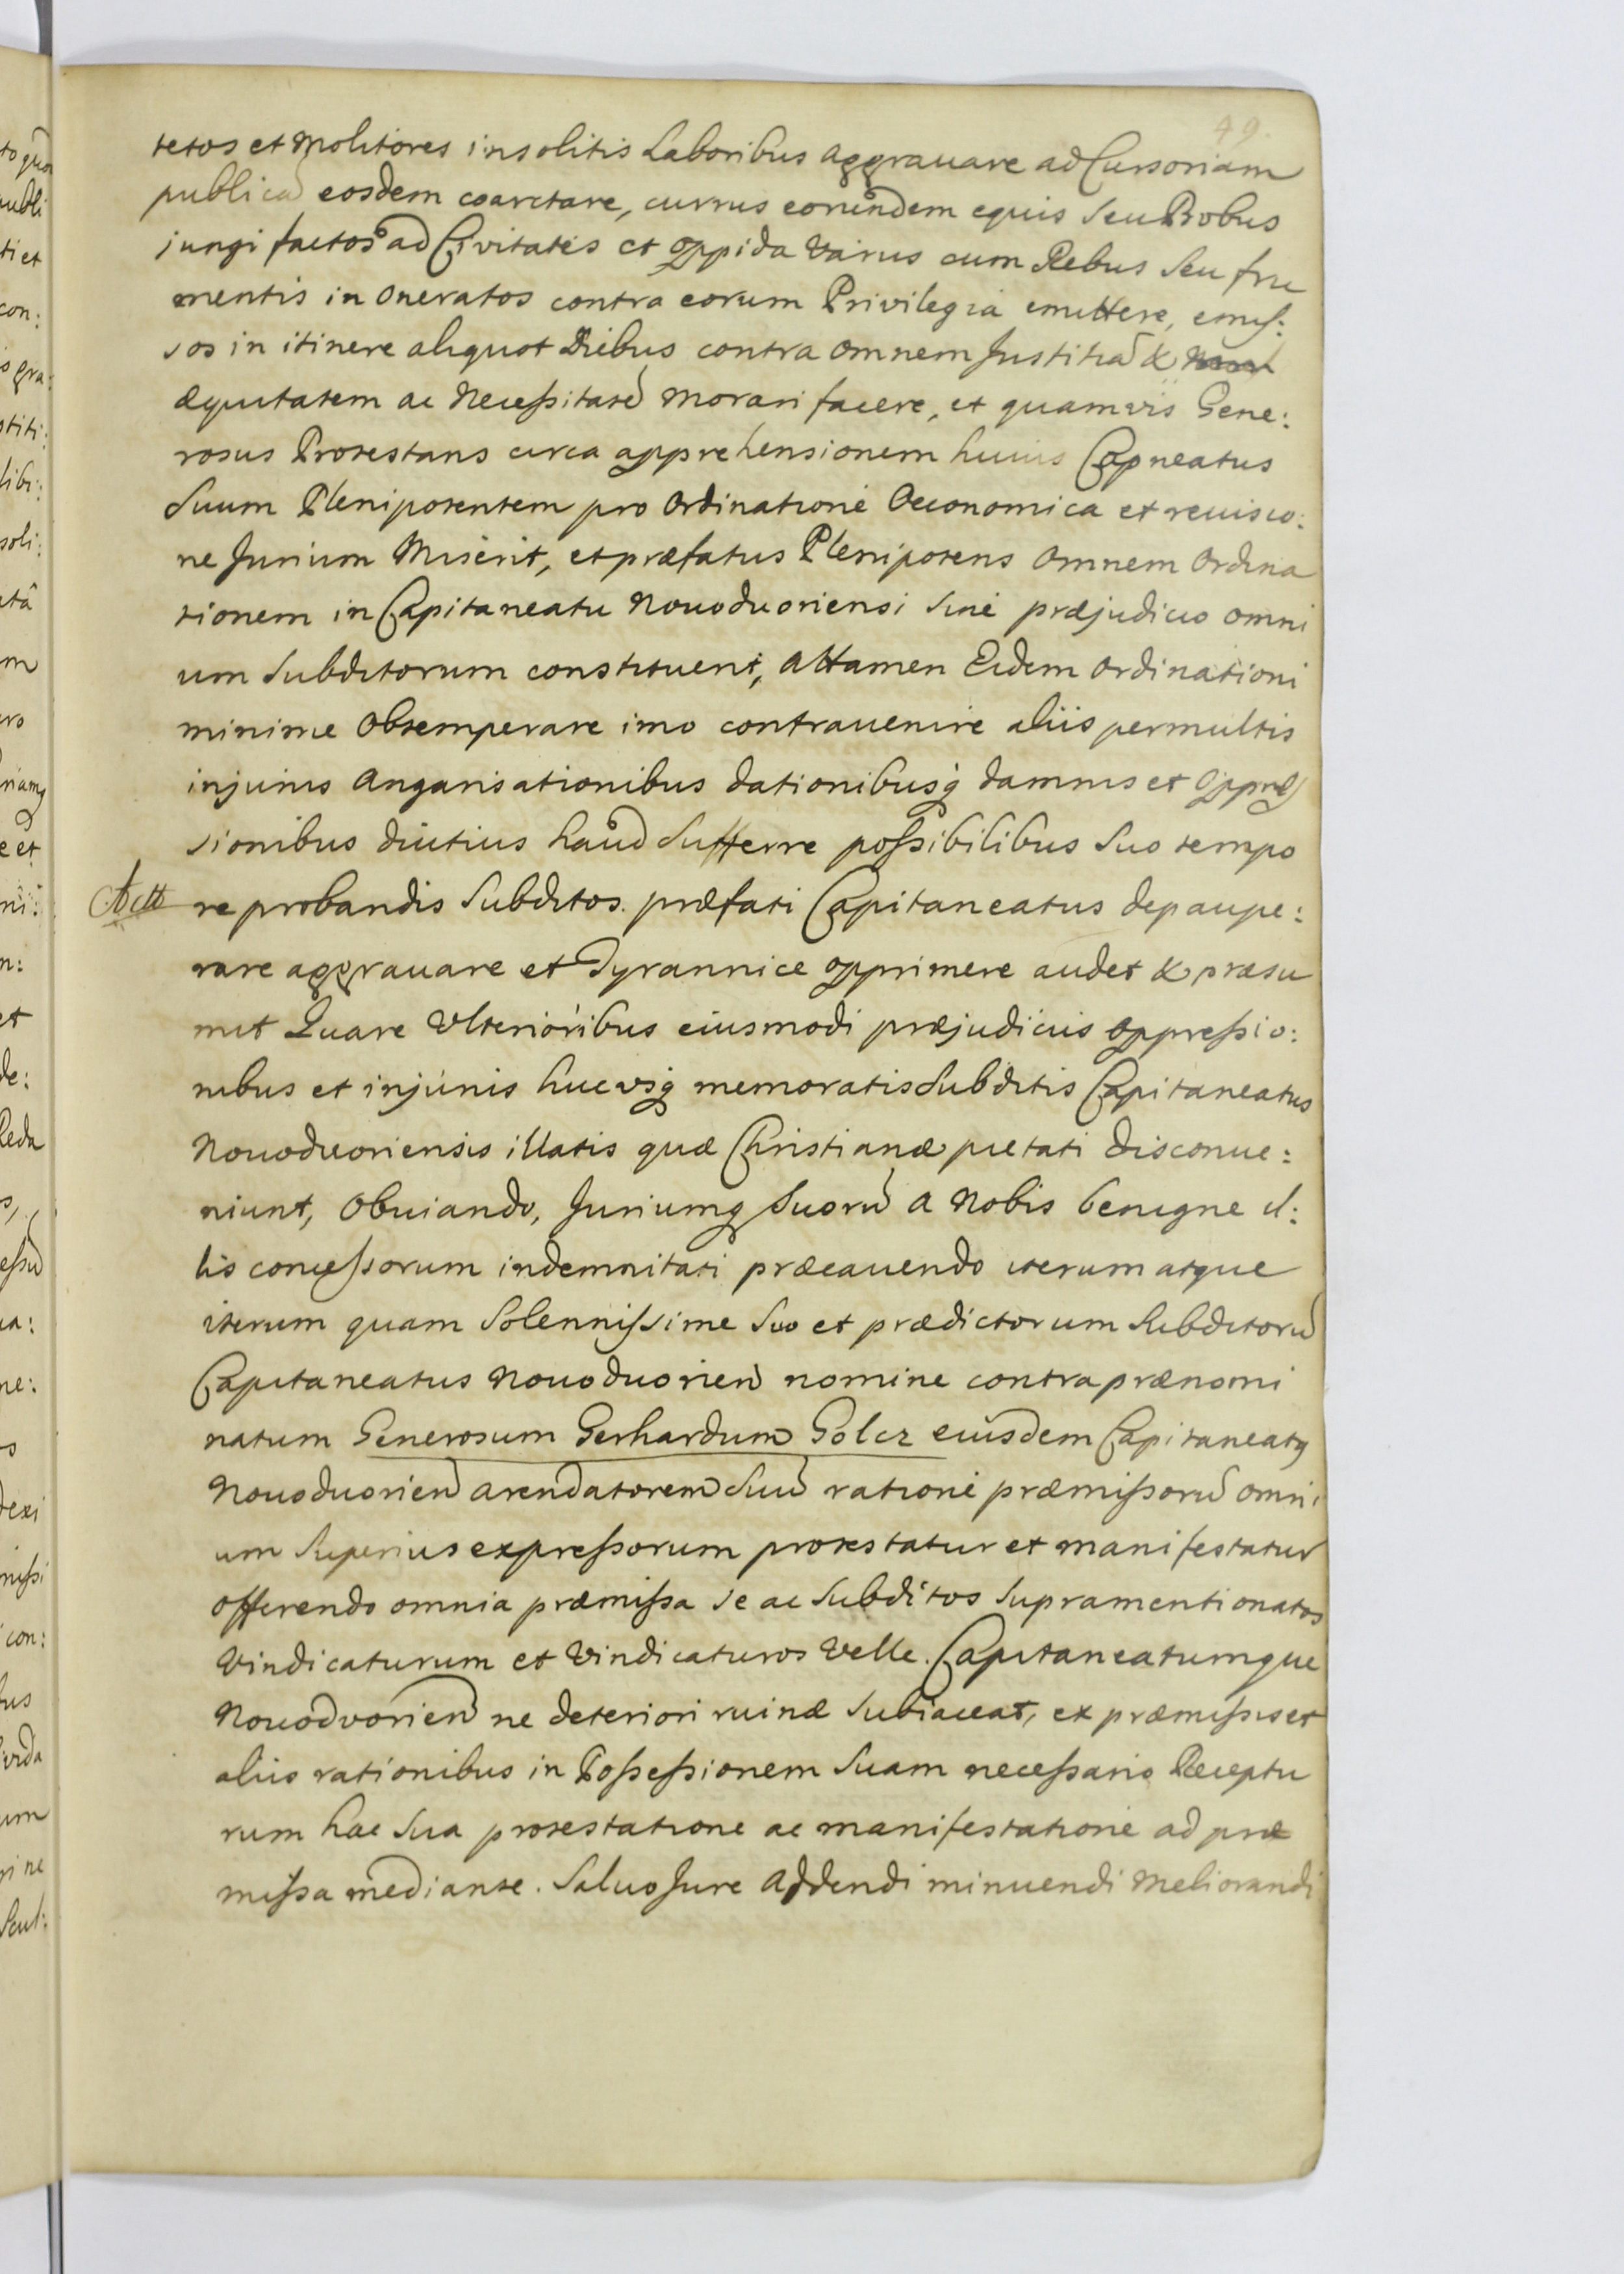 49.
tetos et Molitores insolitis Laboribus aggrauare ad Cursoriam
publicā eosdem coarctare, currus eorundem equis Seu Bobus
jungi factos ad Civitates et oppida varius cum Rebus Seu fru
mentis in oneratos contra eorum Privilegia emittere, emis:
sos in itinere aliquot Diebus contra omnem Justitiā &
æquitatem ac Necessitatē morari facere, et quamvis Gene:
rosus Protestans circa apprehensionem huius Capneatus
Suum Plenipotentem pro ordinatione Oeconomica et reuisio:
ne Jurium Miserit, et præfatus Plenipotens omnem ordina
tionem in Capitaneatu Nouoduoriensi Sine præjudicio omni
um Subditorum constituerit, attamen Eidem ordinationi
minime obtemperare imo contrauenire aliis permultis
injuriis Angarisationibus dationibusq damnis et oppres
sionibus diutius haud Sufferre possibilibus Suo tempo
re probandis Subditos præfati Capitaneatus depaupe:
rare aggrauare et Tyrannice opprimere audet & præsu
mit Quare Ulterioribus eiusmodi præjudiciis oppressio:
nibus et injuriis hucusq memoratis Subditis Capitaneatus
Nouoduoriensis illatis quæ Christianæ pietati disconue:
niunt, obuiando, Juriumq Suorū a Nobis benigne il:
lis concessorum indemnitati præcauendo iterum atque
iterum quam Solennissime Suo et prædictorum Subditorū
Capitaneatus Nouoduorien nomine contra prænomi
natum Generosum Gerhardum Golcz eiusdem Capitaneatq
Nouoduorien arendatorem Suū ratione præmissorū omni
um Superius expressorum protestatur et manifestatur
offerendo omnia præmissa se ac Subditos Supramentionatos
Vindicaturum et Vindicaturos Velle. Capitaneatumque
Nouodvorien ne deteriori ruinæ Subiaceat, ex præmissis et
aliis rationibus in Possessionem Suam necessario Receptu
rum hac Sua protestatione ac manifestatione ad præ
missa mediante. Saluo Jure Addendi minuendi Meliorandi